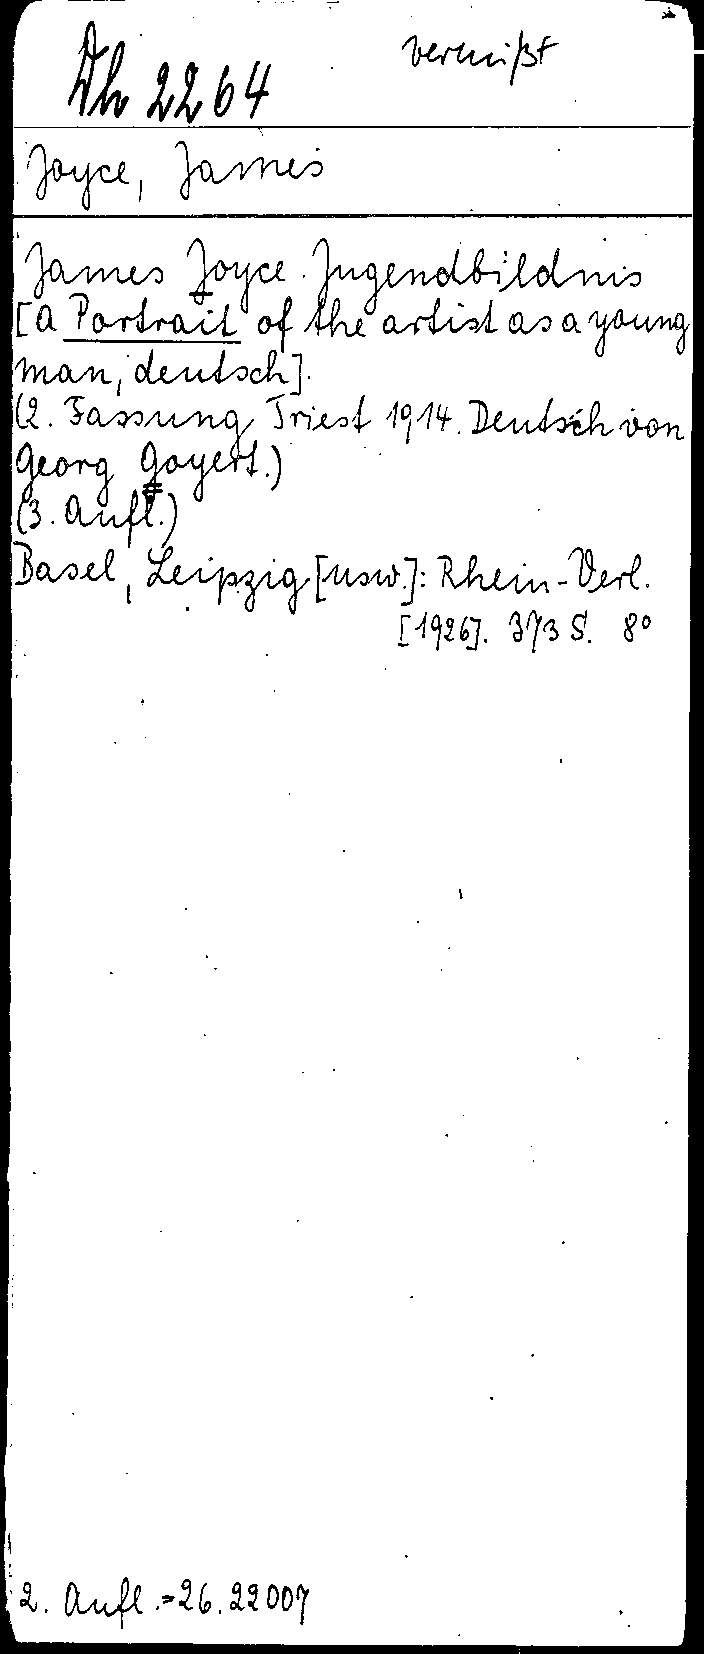 Dh 2264
vermißt
Joyce, James
James Joyce. Jugendbildnis
[A Portrait of the artist as a young
man, deutsch].
(2. Fassung Triest 1914. Deutsch von
Georg Goyert.)
(3. Aufl.)
Basel, Leipzig [usw.]: Rhein-Verl.
[1926]. 373 S. 8°
2. Aufl. = 26.22007